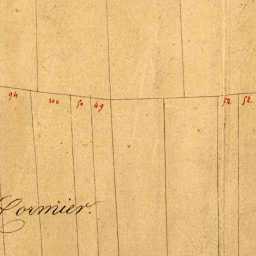 94 100 50 49 52 52
Cormier.